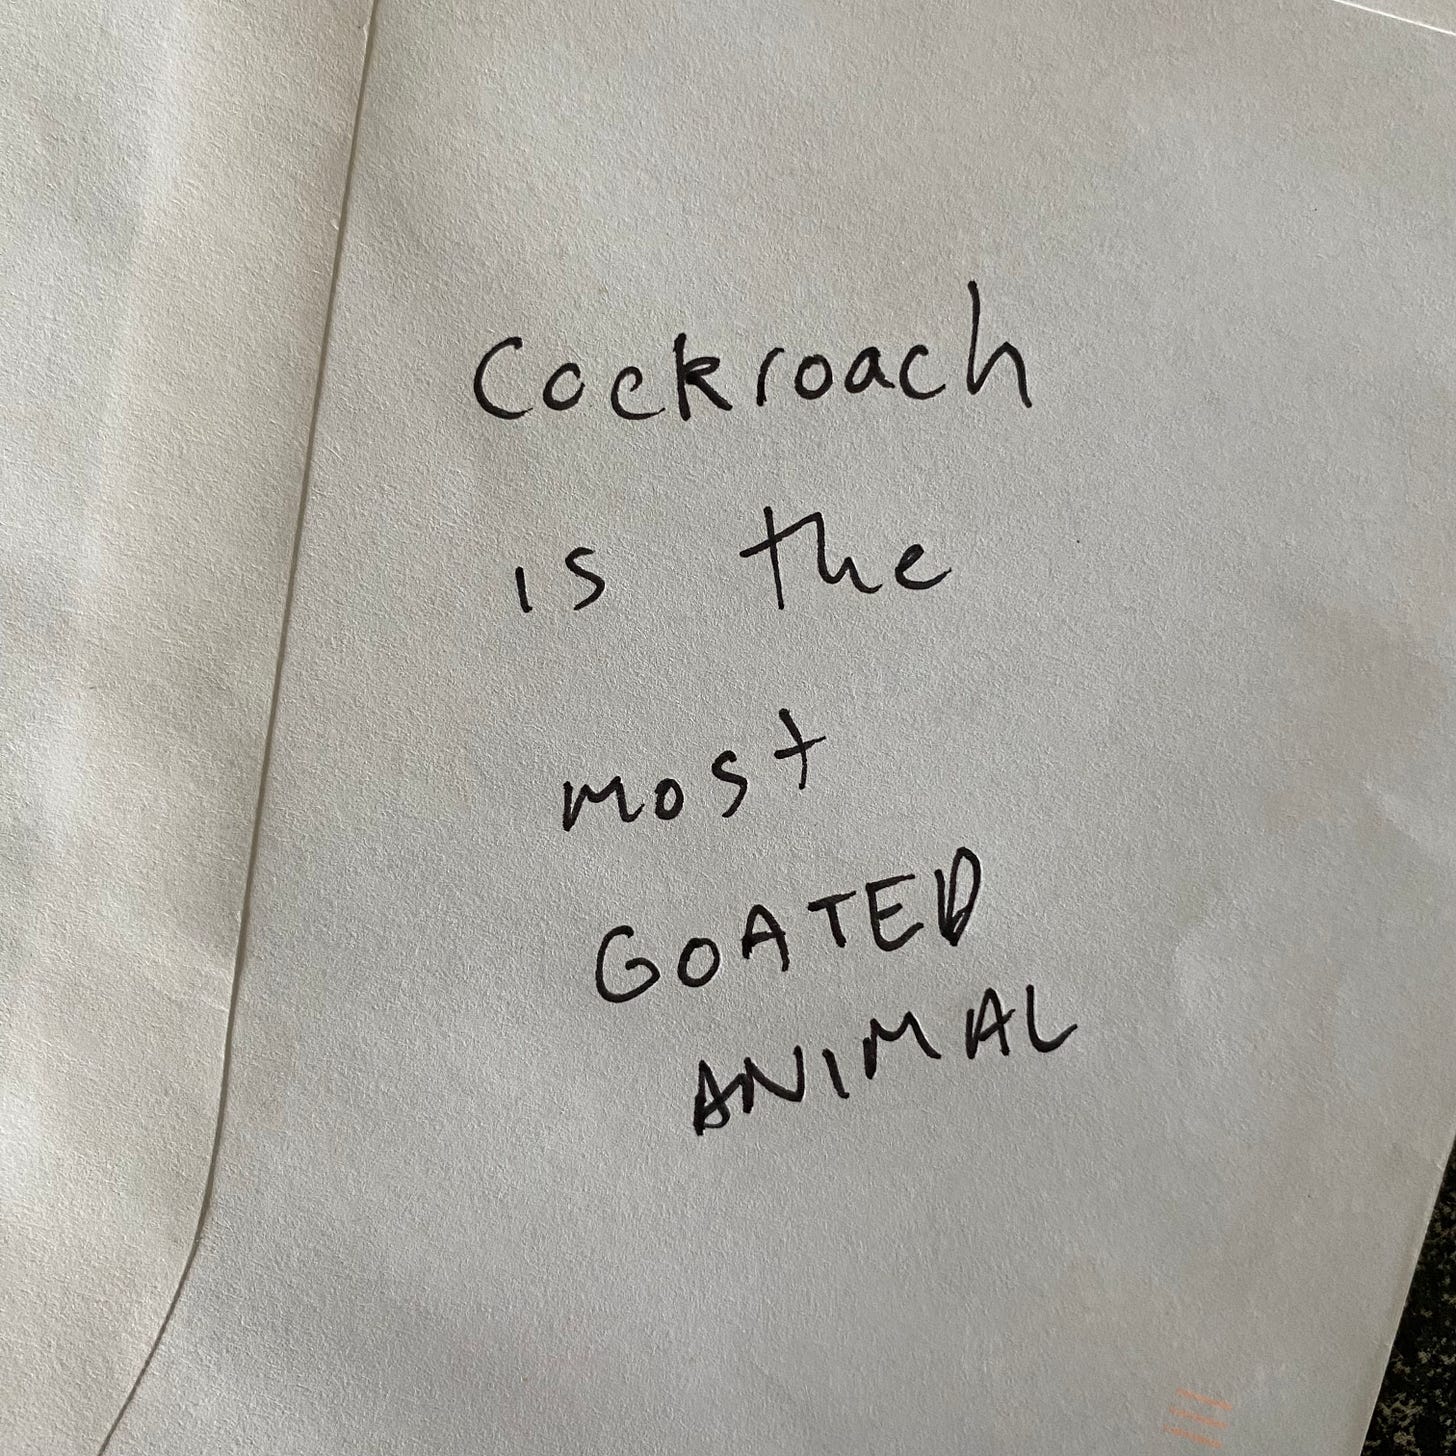 Cockroach
is the
most
GOATED
ANIMAL